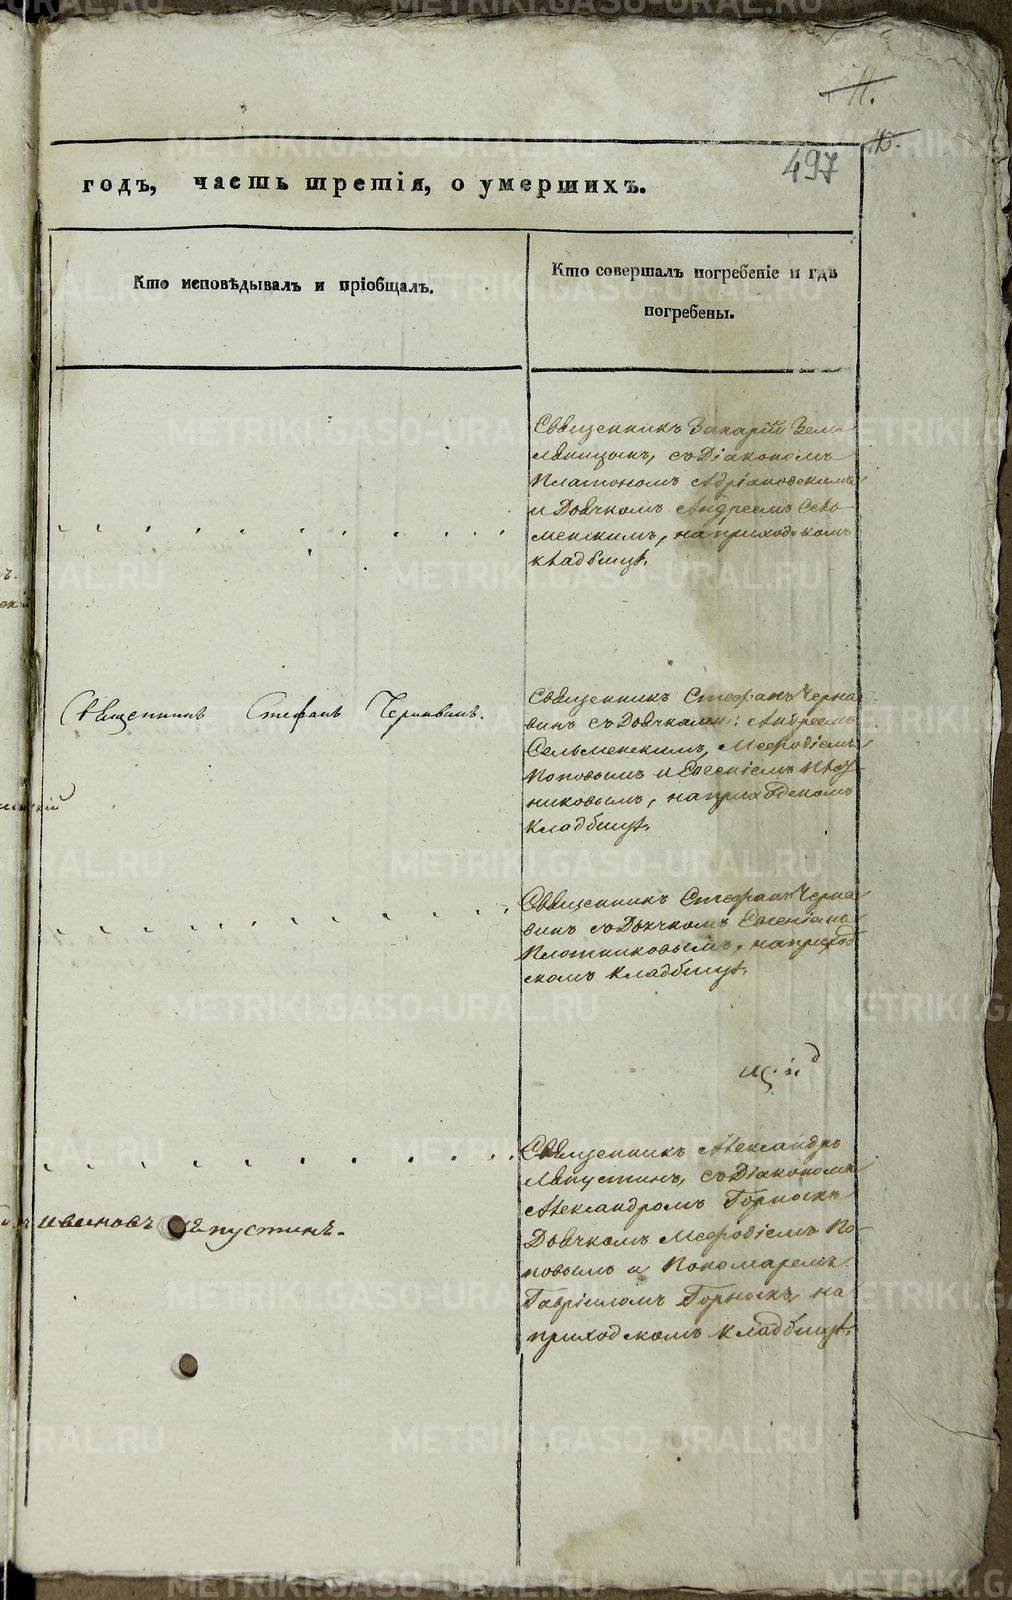 11.
497
годъ, часть третія, о умершихъ.
Кто исповѣдывалъ и пріобщалъ.
Кто совершалъ погребеніе и гдѣ
погребены.
Священникъ Захарій
съ Діакономъ
Платономъ Адріановскимъ
и Дьячкомъ Андреемъ Сель-
менскимъ, на приходскомъ
кладбищѣ.
Священникъ Стефанъ Чернавинъ.
Священникъ Стефанъ Черна-
винъ съ Дьячками: Андреемъ
Сельменскимъ, Мефодіемъ
Поповымъ и Евгеніемъ
никовымъ, на приходскомъ
кладбищѣ.
Священникъ Стефанъ Черна
винъ съ Дьячкомъ Евгеніемъ
Плотниковымъ, на приход
скомъ кладбищѣ.
Священникъ Александръ
Лапустинъ, съ Діакономъ
Александромъ
Дьячкомъ Мефодіемъ По-
повымъ и Пономаремъ
Гавріиломъ на
приходскомъ кладбищѣ.
Ивановъ Лапустинъ.
METRIKI.GASO-URAL.RU